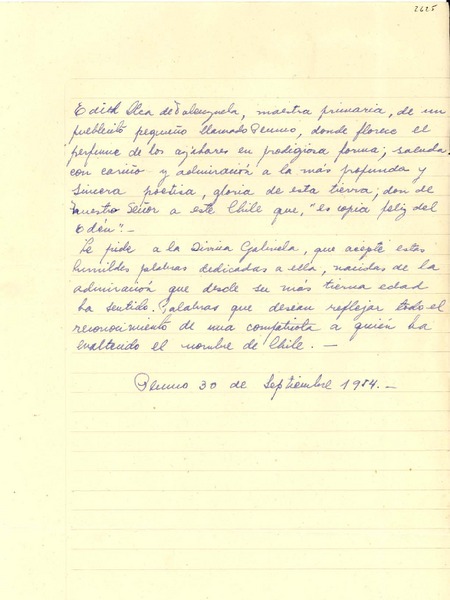 2625
Edith Olea de Valenzuela, maestra primaria, de un
pueblecito pequeño llamado Peumo, donde florece el
perfume de los azahares en prodigiosa forma; saluda
con cariño y admiración a la más profunda y
sincera poetisa, gloria de esta tierra; don de
nuestro Señor a este Chile que, "es copia feliz del
Edén".-
Le pide a la Divina Gabriela, que acepte estas
humildes palabras dedicadas a ella, nacidas de la
admiración que desde su más tierna edad
ha sentido. Palabras que desean reflejar todo el
reconocimiento de una compatriota a quién ha
enaltecido el nombre de Chile. -
Peumo 30 de Septiembre 1954.-